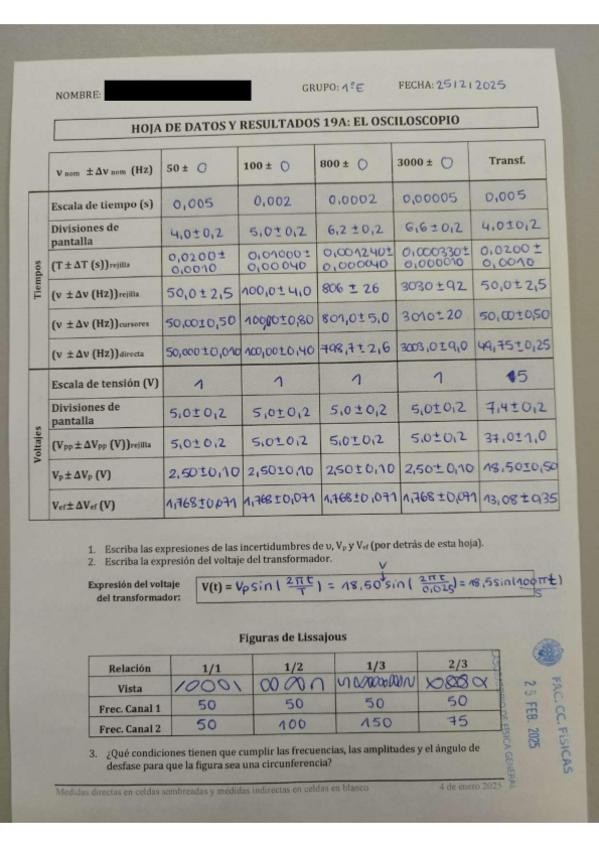 NOMBRE: GRUPO: 1ºE FECHA: 25/2/2025
HOJA DE DATOS Y RESULTADOS 19A: EL OSCILOSCOPIO
ν nom ± Δν nom (Hz) 50 ± 0 100 ± 0 800 ± 0 3000 ± 0 Transf.
Tiempos
Escala de tiempo (s) 0,005 0,002 0,0002 0,00005 0,005
Divisiones de pantalla 4,0±0,2 5,0±0,2 6,2±0,2 6,6±0,2 4,0±0,2
(T ± ΔT (s))rejilla 0,0200± 0,0010 0,01000± 0,00040 0,001240± 0,000040 0,000330± 0,000010 0,0200± 0,0010
(ν ± Δν (Hz))rejilla 50,0±2,5 100,0±4,0 806 ± 26 3030±92 50,0±2,5
(ν ± Δν (Hz))cursores 50,00±0,50 100,00±0,80 801,0±5,0 3010±20 50,00±0,50
(ν ± Δν (Hz))directa 50,000±0,010 100,00±0,40 798,7±2,6 3003,0±9,0 49,75±0,25
Voltajes
Escala de tensión (V) 1 1 1 1 5
Divisiones de pantalla 5,0±0,2 5,0±0,2 5,0±0,2 5,0±0,2 7,4±0,2
(Vpp ± ΔVpp (V))rejilla 5,0±0,2 5,0±0,2 5,0±0,2 5,0±0,2 37,0±1,0
Vp ± ΔVp (V) 2,50±0,10 2,50±0,10 2,50±0,10 2,50±0,10 18,50±0,50
Vef ± ΔVef (V) 1,768±0,071 1,768±0,071 1,768±0,071 1,768±0,071 13,08±0,35
1. Escriba las expresiones de las incertidumbres de υ, Vp y Vef (por detrás de esta hoja).
2. Escriba la expresión del voltaje del transformador.
Expresión del voltaje del transformador: V(t) = Vp sin(2πt/T) = 18,50 V sin(2πt/0,025) = 18,5 sin(100πt/s)
Figuras de Lissajous
Relación 1/1 1/2 1/3 2/3
Vista
Frec. Canal 1 50 50 50 50
Frec. Canal 2 50 100 150 75
3. ¿Qué condiciones tienen que cumplir las frecuencias, las amplitudes y el ángulo de
desfase para que la figura sea una circunferencia?
Medidas directas en celdas sombreadas y medidas indirectas en celdas en blanco 4 de enero 2025
DE FÍSICA GENERAL
25 FEB. 2025
FAC. CC. FÍSICAS